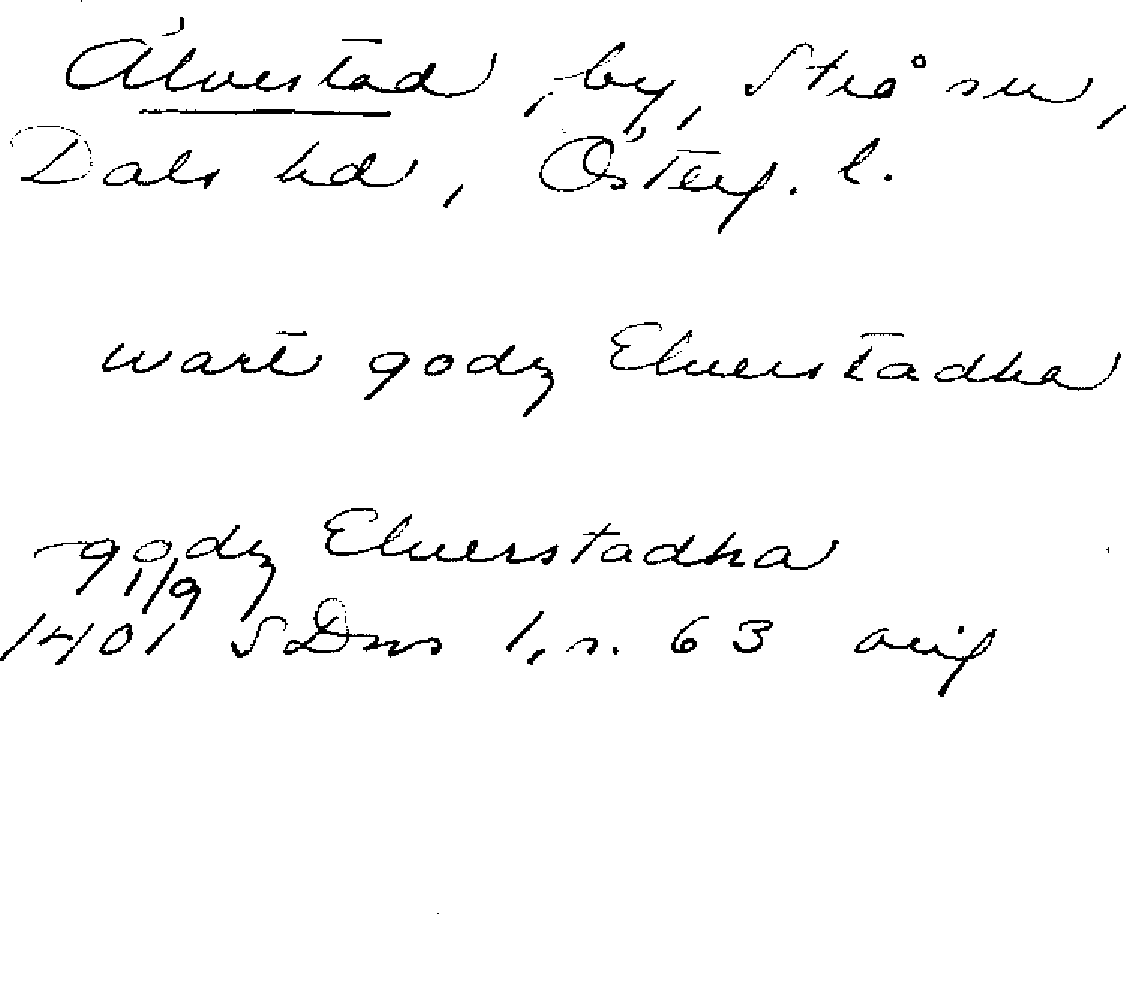 Älvestad, by, Strå sn,
Dals hd, Österg. l.
wart godz Eluerstadha
godz Eluerstadha
1/9
1401 SDns 1, s. 63 orig